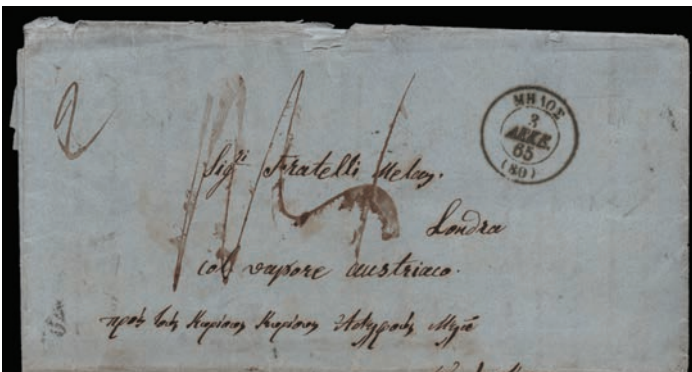 2
ΜΗΛΟΣ
3
ΔΕΚΕ.
65
(80)
Sigri Fratelli Melas.
Londra
col vapore austriaco.
πρὸς τοὺς Κυρίους Κυρίους Ἀδελφοὺς Μελᾶ